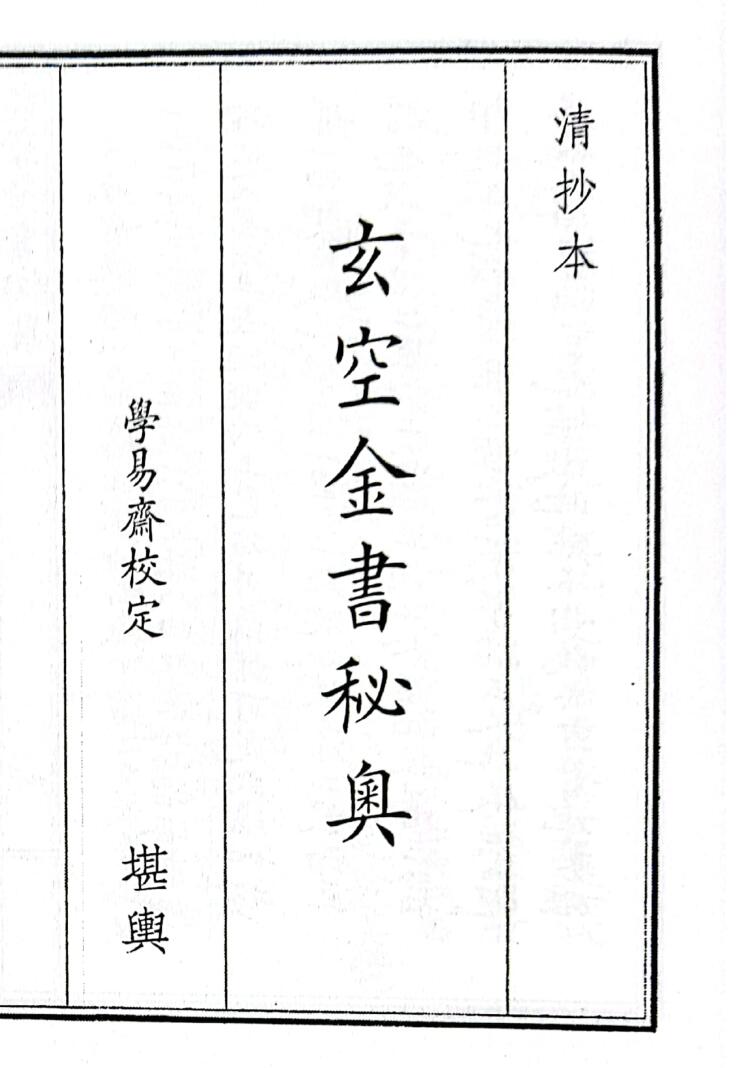 清抄本
玄空金書秘奧
學易齋校定 堪輿